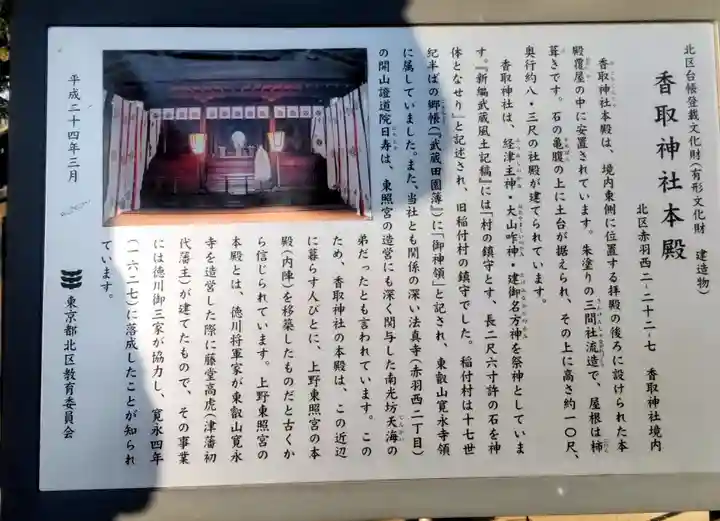 北区台帳登載文化財(有形文化財 建造物)
香取神社本殿
北区赤羽西二-二十二-七 香取神社境内
香取神社本殿は、境内東側に位置する拝殿の後ろに設けられた本
殿覆屋の中に安置されています。朱塗りの三間社流造で、屋根は杮
葺きです。石の亀腹の上に土台が据えられ、その上に高さ約一〇尺、
奥行約八・三尺の社殿が建てられています。
香取神社は、経津主神・大山咋神・建御名方神を祭神としていま
す。『新編武蔵風土記稿』には「村の鎮守とす、長二尺六寸許の石を神
体となせり」と記述され、旧稲付村の鎮守でした。稲付村は十七世
紀半ばの郷帳(『武蔵田園簿』)に「御神領」と記され、東叡山寛永寺領
に属していました。また、当社とも関係の深い法真寺(赤羽西二丁目)
の開山證道院日寿は、東照宮の造営にも深く関与した南光坊天海の
弟だったとも言われています。この
ため、香取神社の本殿は、この近辺
に暮らす人びとに、上野東照宮の本
殿(内陣)を移築したものだと古くか
ら信じられています。上野東照宮の
本殿とは、徳川将軍家が東叡山寛永
寺を造営した際に藤堂高虎(津藩初
代藩主)が建てたもので、その事業
には徳川御三家が協力し、寛永四年
(一六二七)に落成したことが知られ
ています。
平成二十四年三月
東京都北区教育委員会